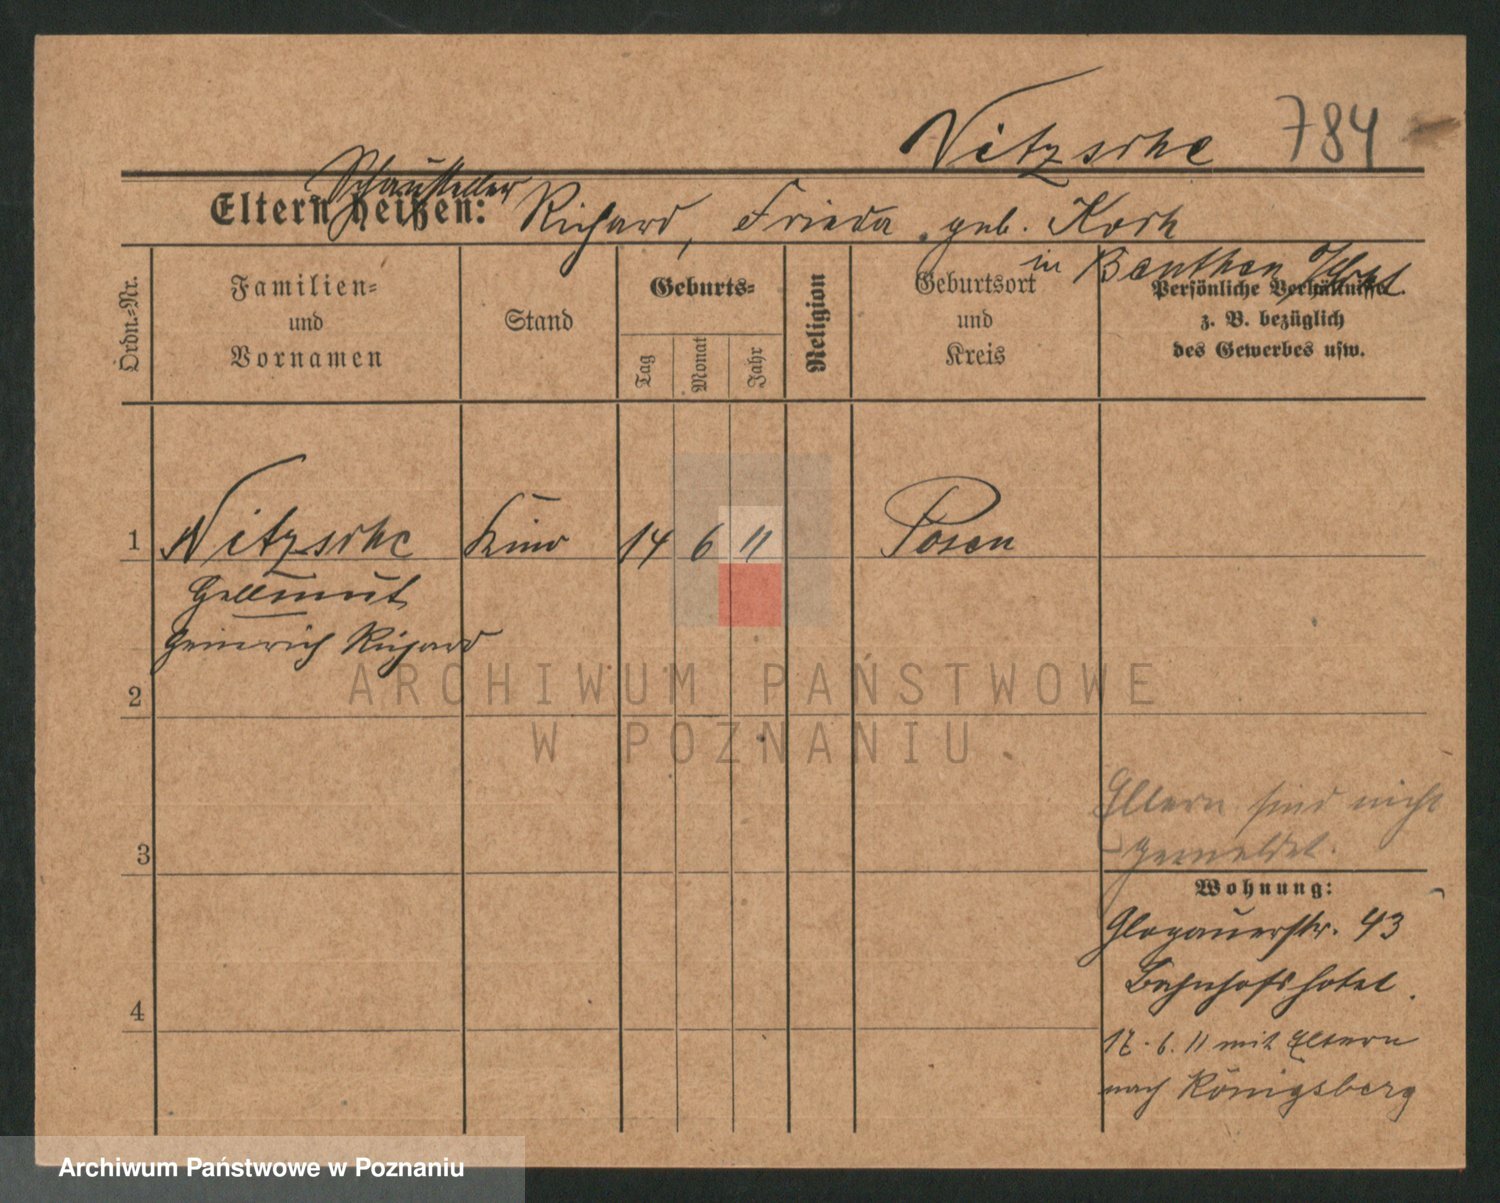 Nitzsche 784
Schausteller
Eltern heißen: Richard, Frieda geb. Koch
in Beuthen
Ordn.-Nr.
Familien-
und
Vornamen
Stand
Geburts-
Tag
Monat
Jahr
Religion
Geburtsort
und
Kreis
Persönliche Verhältnisse
z. B. bezüglich
des Gewerbes usw.
1 Nitzsche Kind 14 6 11 Posen
Hellmut
Heinrich Richard
ARCHIWUM PAŃSTWOWE
W POZNANIU
2
Eltern sind nicht
gemeldet.
3
Wohnung:
Glogauerstr. 43
Bahnhofshotel.
4
17. 6. 11 mit Eltern
nach Königsberg
Archiwum Państwowe w Poznaniu